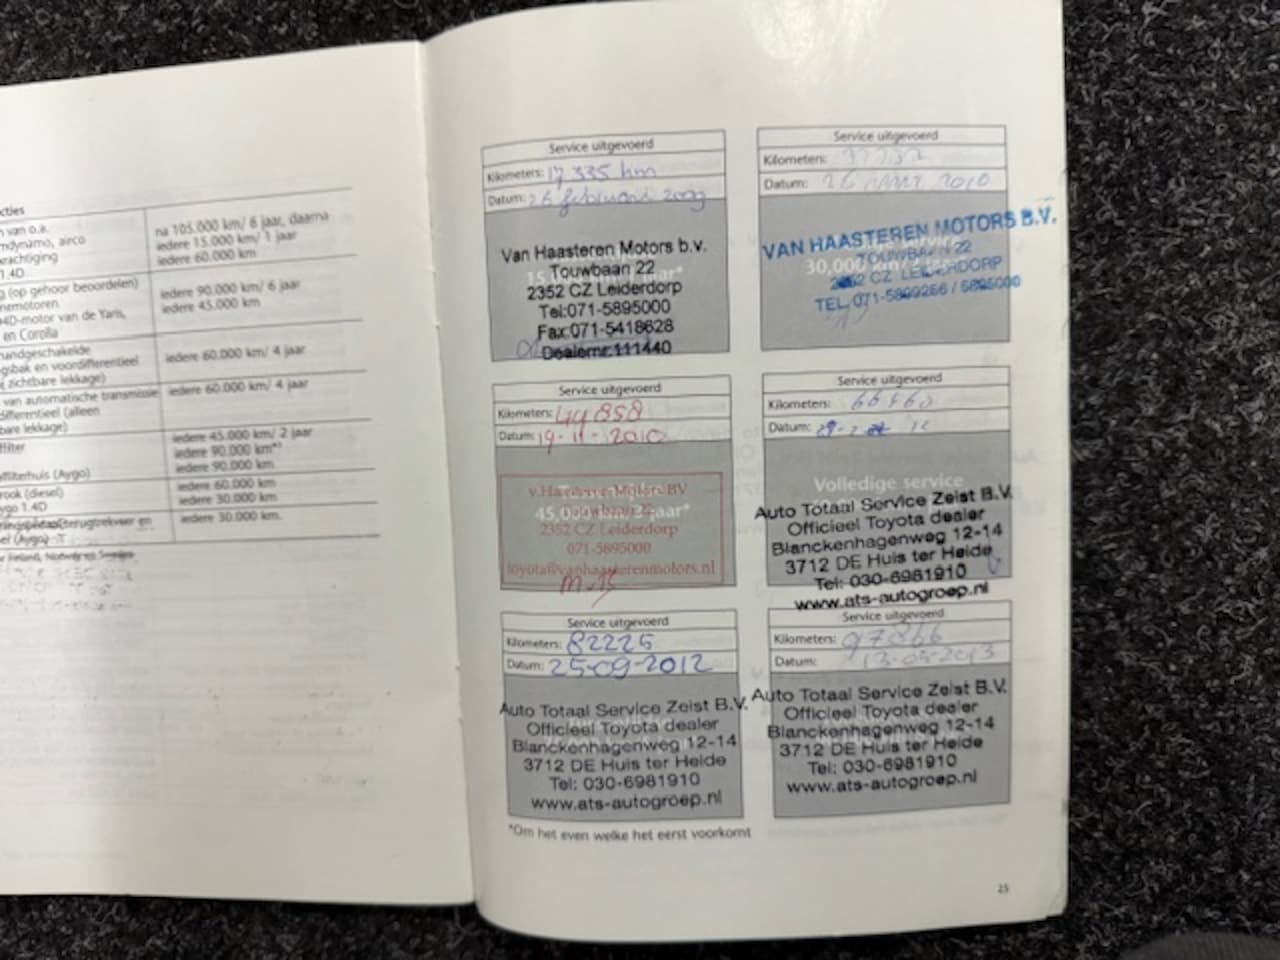 cties
n van o.a.
mdynamo, airco
krachtiging
1.4D
na 105.000 km/ 6 jaar, daarna
iedere 15.000 km/ 1 jaar
iedere 60.000 km
g (op gehoor beoordelen)
nemotoren
4D-motor van de Yaris,
en Corolla
iedere 90.000 km/ 6 jaar
iedere 45.000 km
handgeschakelde
gsbak en voordifferentieel
zichtbare lekkage)
iedere 60.000 km/ 4 jaar
van automatische transmissie
differentieel (alleen
bare lekkage)
iedere 60.000 km/ 4 jaar
filter
iedere 45.000 km/ 2 jaar
iedere 90.000 km*¹
affilterhuis (Aygo)
iedere 90.000 km
rook (diesel)
ygo 1.4D
iedere 60.000 km
iedere 30.000 km
iedere 30.000 km.
el (Aygo)
Service uitgevoerd
Kilometers: 17 335 km
Datum: 26 februari 2009
Van Haasteren Motors b.v.
Touwbaan 22
2352 CZ Leiderdorp
Tel:071-5895000
Fax:071-5418628
Dealernr.111440
Service uitgevoerd
Kilometers:
Datum: 2010
VAN HAASTEREN MOTORS B.V.
30.000
TOUWBAAN 22
2352 CZ LEIDERDORP
TEL. 071-5899266 / 5895000
Service uitgevoerd
Kilometers: 44 858
Datum: 19-11-2010
v.Haasteren Motors BV
45.000 jaar*
2352 CZ Leiderdorp
071-5895000
toyota@vanhaasterenmotors.nl
Service uitgevoerd
Kilometers:
Datum:
Volledige service
Auto Totaal Service Zeist B.V.
Officieel Toyota dealer
Blanckenhagenweg 12-14
3712 DE Huis ter Heide
Tel: 030-6981910
www.ats-autogroep.nl
Service uitgevoerd
Kilometers: 82225
Datum: 25-09-2012
Auto Totaal Service Zeist B.V.
Officieel Toyota dealer
Blanckenhagenweg 12-14
3712 DE Huis ter Heide
Tel: 030-6981910
www.ats-autogroep.nl
Service uitgevoerd
Kilometers:
Datum: 13-05-2013
Auto Totaal Service Zeist B.V.
Officieel Toyota dealer
Blanckenhagenweg 12-14
3712 DE Huis ter Heide
Tel: 030-6981910
www.ats-autogroep.nl
*Om het even welke het eerst voorkomt
25